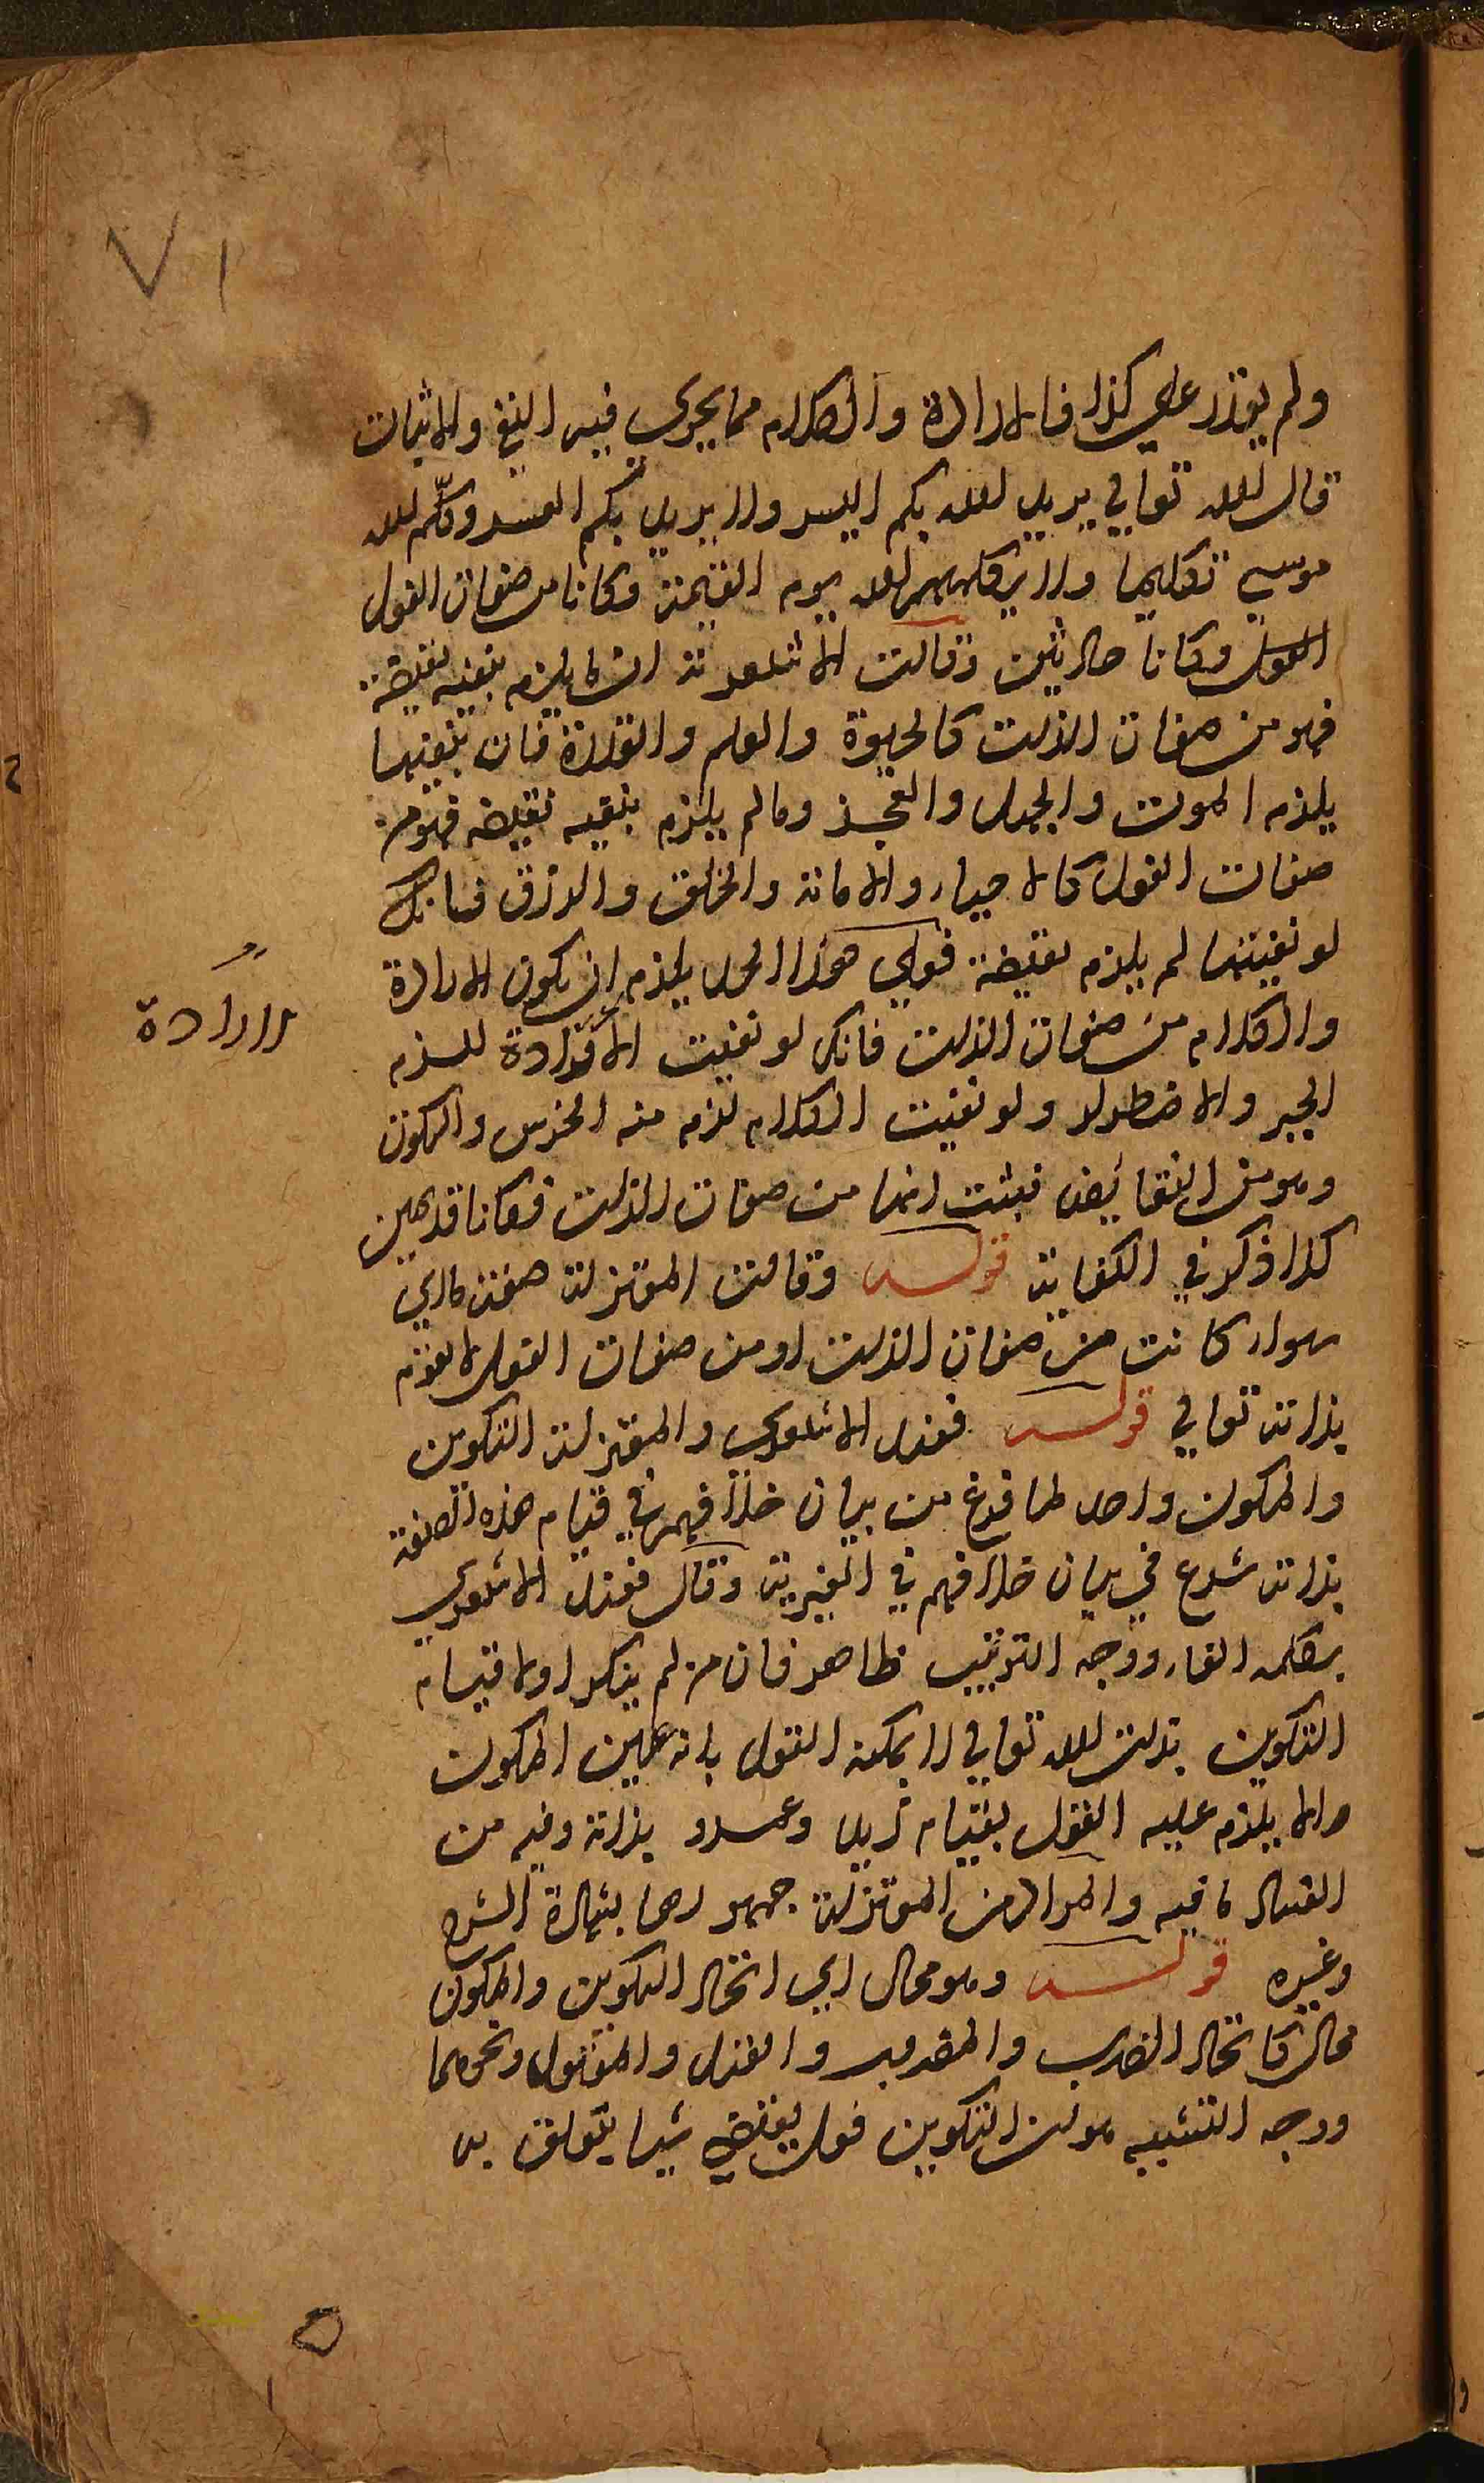 ٧١
ولم يقدر علي كذا فالارادة والكلام مما يجري فيه النفي والاثبات
قال الله تعالي يريد الله بكم اليسر ولا يريد بكم العسر وكلّم الله
موسي تكليما ولا يكلمهم الله يوم القيمة وكانا من صفات الفعل
وكانا حادثين وقالت الاشعرية ان ما يلزم بنفيه نقيضه
فهو من صفات الذات كالحيوة والعلم والقدرة فان بنفيها
يلزم الموت والجهل والعجز وما لم يلزم بنفيه نقيضه فهو من
صفات الفعل كالاحياء والاماتة والخلق والرزق فانك
لو نفيتها لم يلزم نقيضه فعلي هذا الحد يلزم ان يكون الارادة
والكلام من صفات الذات فانك لو نفيت الارادة للزم
الارادة
الجبر والاضطرار ولو نفيت الكلام لزم منه الخرس والسكوت
وهو من النقايص فيثبت انهما من صفات الذات فكانا قديمين
كذا ذكر في الكفاية قوله وقالت المعتزلة صفة الباري
سواء كانت من صفات الذات او من صفات الفعل لا يقوم
بذاته تعالي قوله فعند الاشعري والمعتزلة التكوين
والمكون واحد لما فرغ من بيان خلافهم في قيام هذه الصفة
بذاته شرع في بيان خلافهم في الغيرية وقال فعند الاشعري
بكلمة الفاء ووجه الترتيب ظاهر فان من لم ينكر اولا قيام
التكوين بذات الله تعالي لا يمكنه القول بانه عين المكون
والا يلزم عليه القول بقيام زيد وعمرو بذاته وفيه من
الفساد ما فيه والمراد من المعتزلة جمهورها بشهادة الشرح
وغيره قوله وهو محال اي اتحاد التكوين والمكون
محال كاتحاد الضرب والمضروب والقتل والمقتول ونحوهما
ووجه التشبيه هو ان التكوين فعل يقتضي شيا يتعلق به